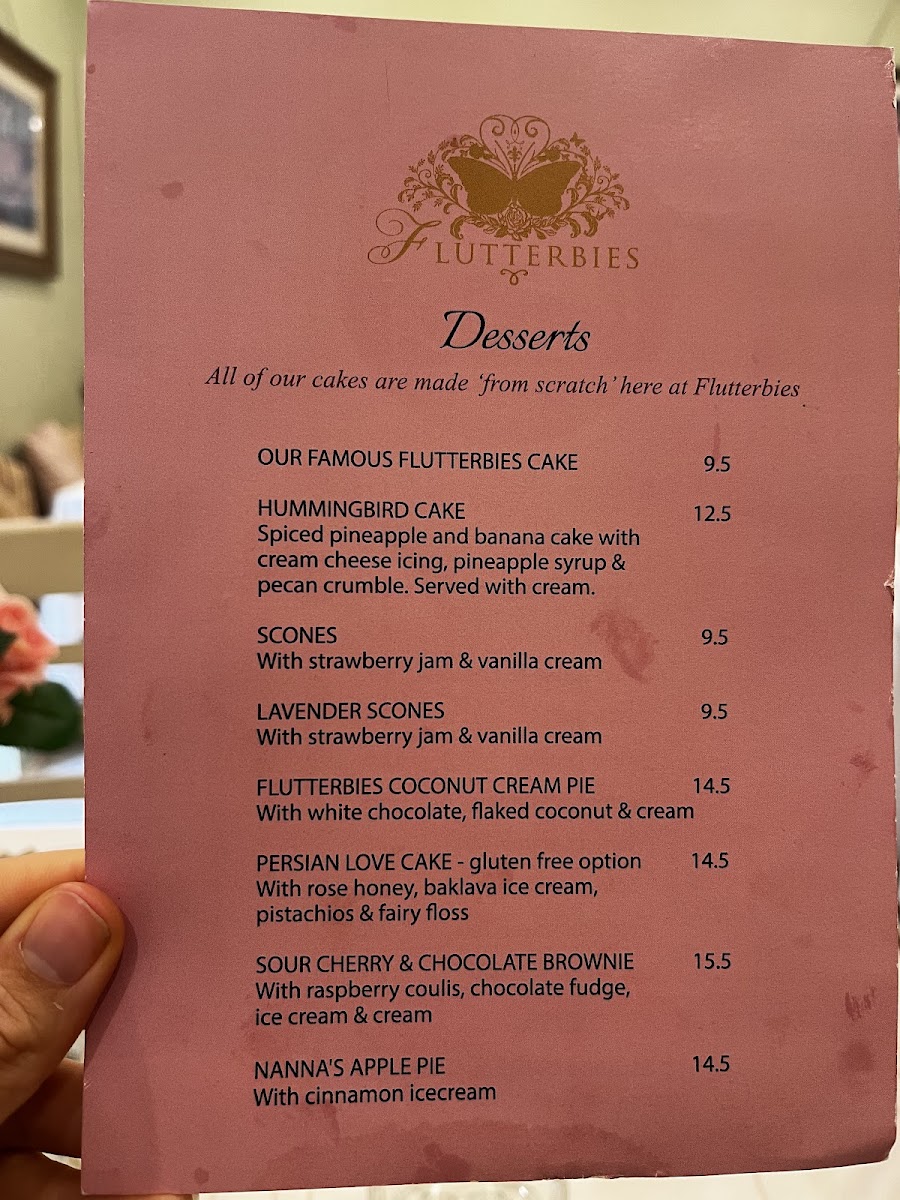 FLUTTERBIES
Desserts
All of our cakes are made ‘from scratch’ here at Flutterbies
OUR FAMOUS FLUTTERBIES CAKE 9.5
HUMMINGBIRD CAKE 12.5
Spiced pineapple and banana cake with
cream cheese icing, pineapple syrup &
pecan crumble. Served with cream.
SCONES 9.5
With strawberry jam & vanilla cream
LAVENDER SCONES 9.5
With strawberry jam & vanilla cream
FLUTTERBIES COCONUT CREAM PIE 14.5
With white chocolate, flaked coconut & cream
PERSIAN LOVE CAKE - gluten free option 14.5
With rose honey, baklava ice cream,
pistachios & fairy floss
SOUR CHERRY & CHOCOLATE BROWNIE 15.5
With raspberry coulis, chocolate fudge,
ice cream & cream
NANNA'S APPLE PIE 14.5
With cinnamon icecream